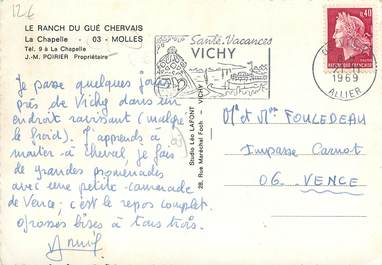 12€
LE RANCH DU GUÉ CHERVAIS
La Chapelle - 03 - MOLLES
Tél. 9 à La Chapelle
J.-M. POIRIER Propriétaire
Je passe quelques jours
près de Vichy dans un
endroit ravissant (malgré
le froid). J'apprends à
monter à cheval, je fais
de grandes promenades
avec une petite camarade
de Vence; c'est le repos complet.
Grosses bises à tous trois.
Studio Léo LAFONT
28, Rue Maréchal Foch - VICHY
Santé, Vacances
VICHY
0,40
REPUBLIQUE FRANÇAISE
1969
ALLIER
Mr et Mme FOULEDEAU
Impasse Carnot
06. VENCE